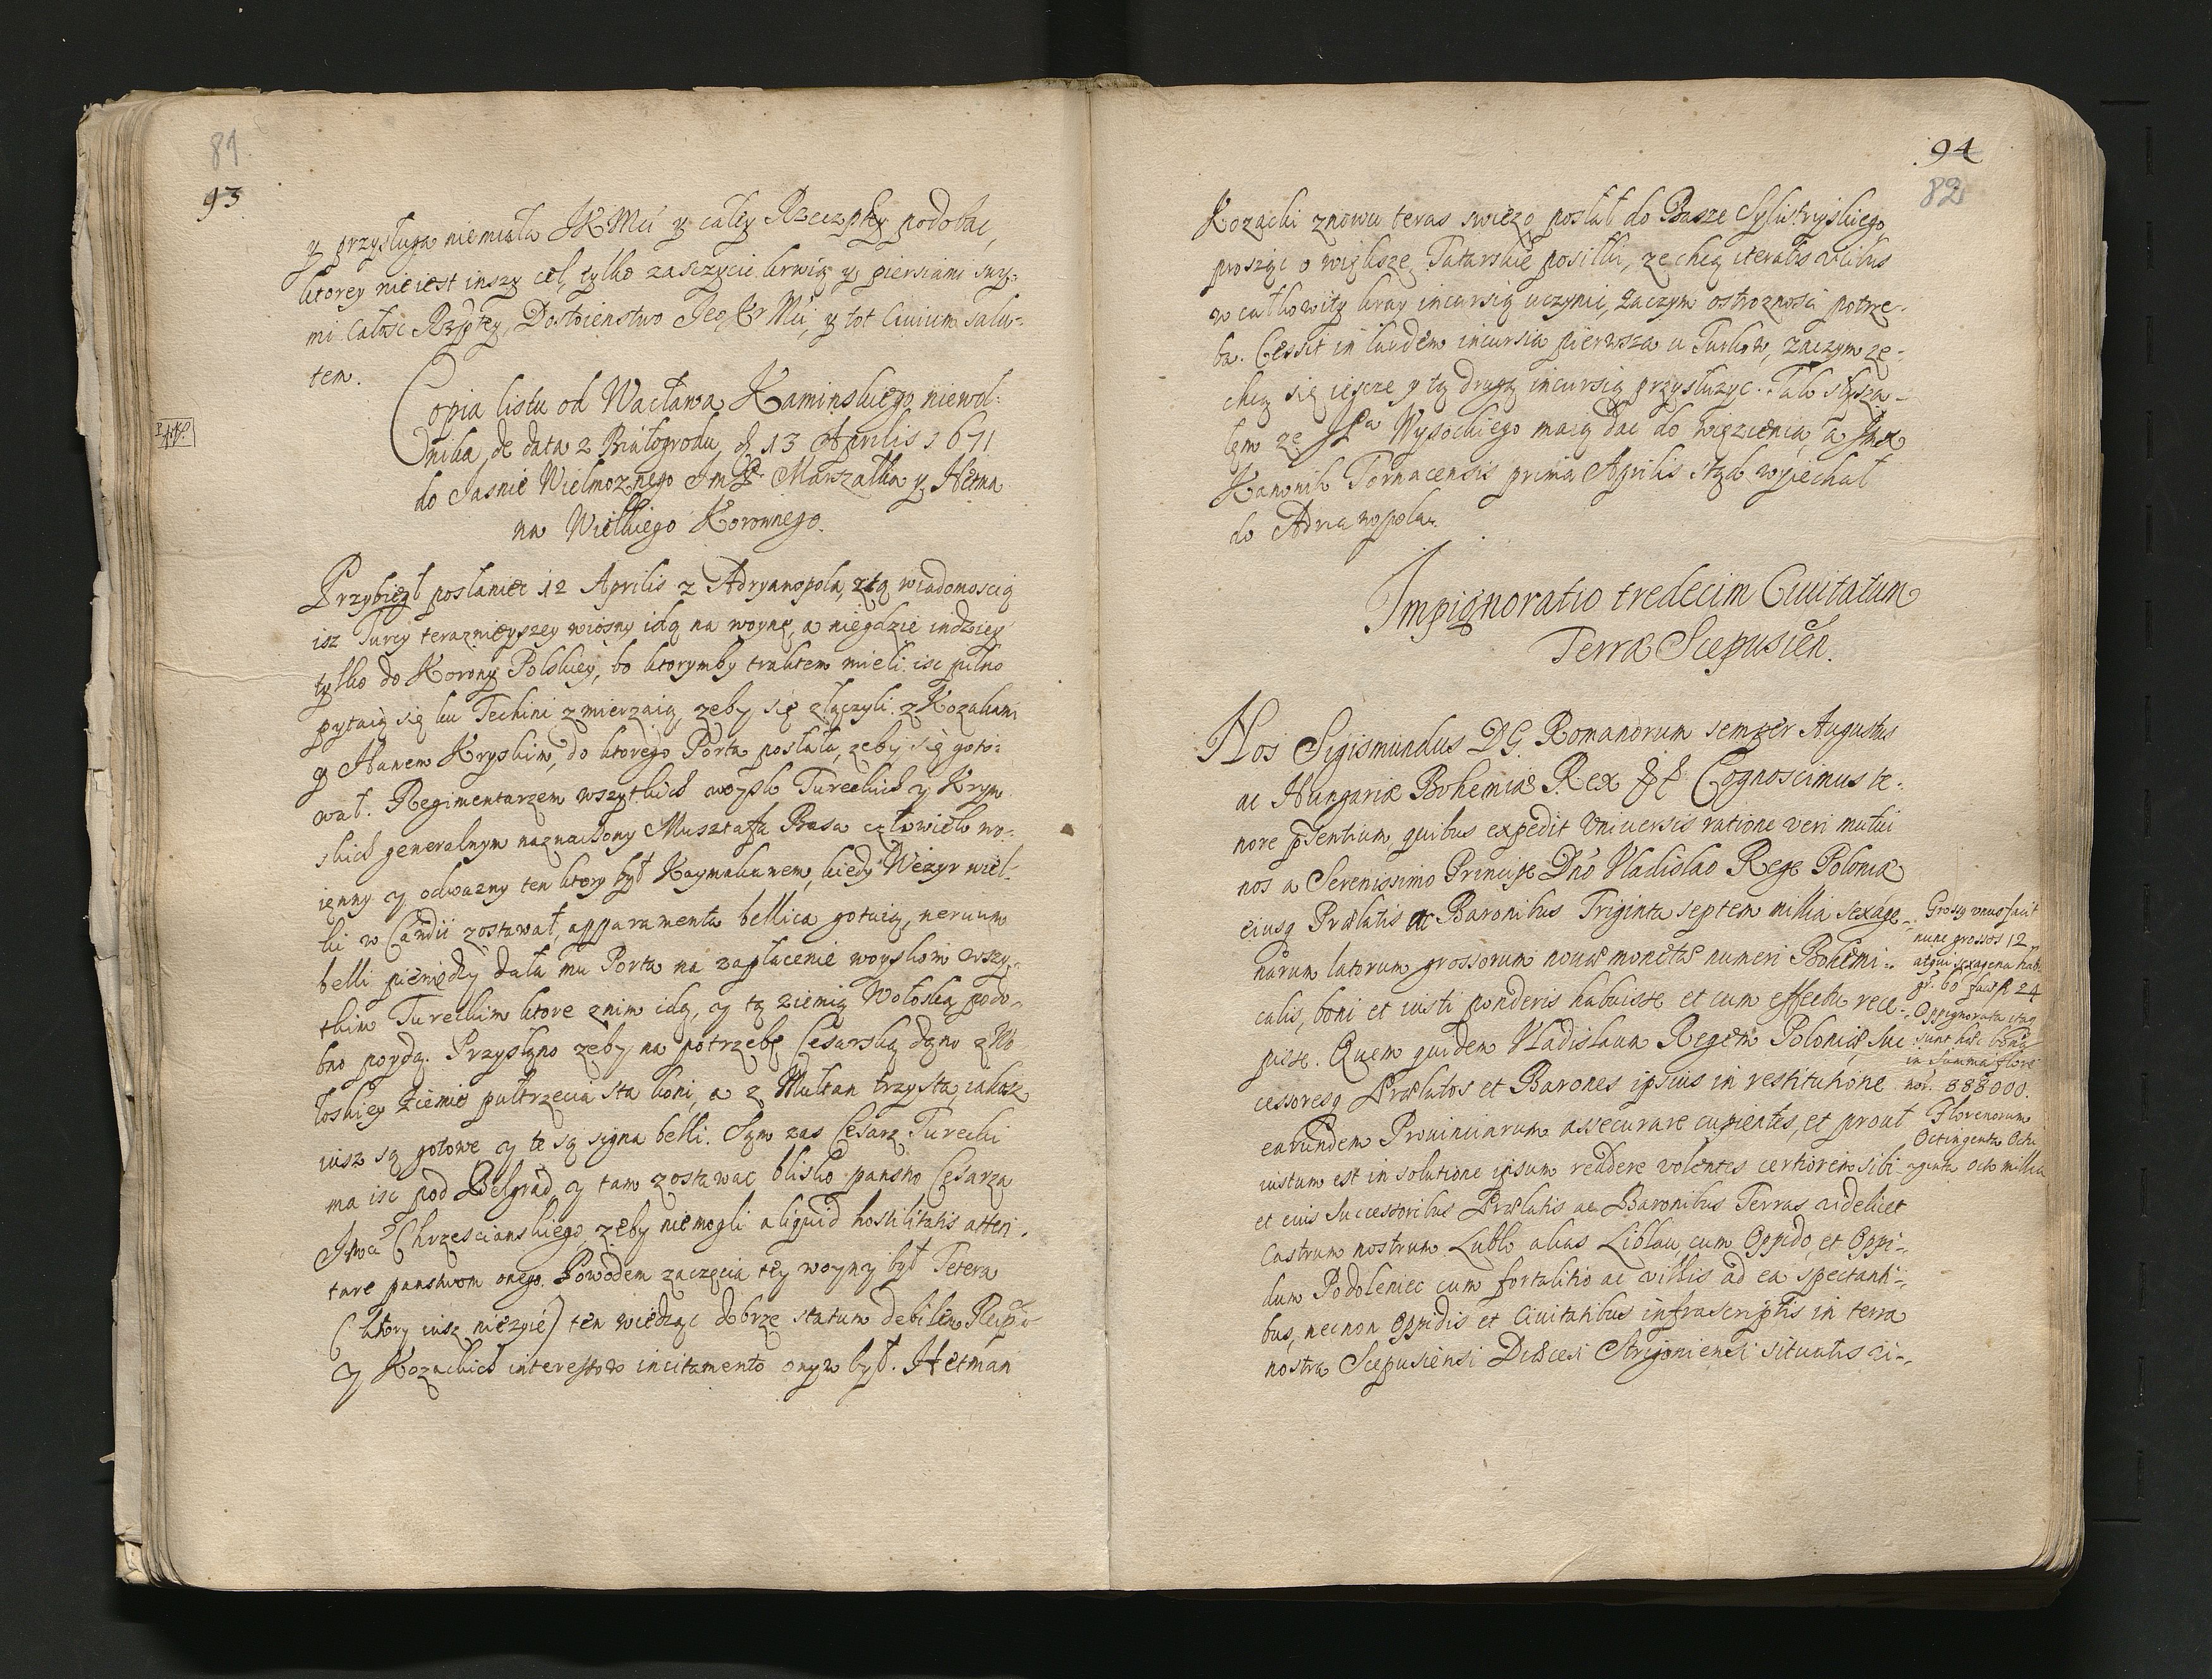 81
93
y przysługa niemała JKMci y całey Rzeczptey podobac,
ktorey nie iest inszy cel, tylko zasczycic krwią y piersiami swy-
mi całosc Rzptey, Dostoienstwo Jeo Kr Mci, y tot Ciuium salu-
tem.
Copia listu od Wacława Kaminskiego niewol-
nika, de data z Białogrodu, d 13 Aprilis 1671
do Jasnie Wielmoznego JmP. Marszałka y Hetma
na Wielkiego Koronnego.
Przybiegł posłaniec 12 Aprilis z Adryanopola, ztą wiadomoscią
isz Turcy teraznieyszey wiosny idą na woynę, a niegdzie indziey
tylko do Korony Polskiey, bo ktorymby traktem mieli isc pilno
pytaią się ku Techini zmierzaią, zeby się złączyli z Kozakami
y Hanem Kryskim, do ktorego Porta posłała, zeby się goto-
wał. Regimentarzem wszytkich woysk Tureckich y Krym
skich generalnym naznaczony Musztafa Basa człowiek wo-
ienny y odwazny ten ktory był Kaymakanem, kiedy Wezyr wiel-
ki w Candii zostawał, apparamenta bellica gotuią, neruum
belli pieniędzy dała mu Porta na zapłacenie woyskom wszy-
tkim Tureckim ktore znim idą, y tą ziemią Wołoską podo-
bno poydą. Przysłano zeby na potrzebę Cesarską dano z Wo
łoskiey ziemie pułtrzecia sta koni, a z Multan trzysta, iakosz
iusz są gotowe y te są signa belli. Sąm zas Cesarz Turecki
ma isc pod Belgrad, y tam zostawac blisko panstw Cesarza
Jmci Chrzescianskiego, zeby niemogli aliquid hostilitatis atten-
tare panstwom onego. Powodem zaczęcia tey woyny był Tetera
(ktory iusz niezyie) ten wiedząc dobrze statum debilem Reipcæ
y Kozackich interessow incitamento onym był. Hetman
94
82
Kozacki znowu teras swiezo posłał do Basze Sylistryiskiego
prosząc o większe Tatarskie posiłki, ze chcą iteratis vicibus
w całkowity kray incursią uczynic, zaczym ostroznosci potrze-
ba. Cessit in laudem incursia pierwsza u Turkow, zaczym ze-
chcą się iescze y tą drugą incursią przysłuzyc. Tak słysza-
łem ze JPa Wysockiego maią dac do więzienia, a Jmx
Kanonik Tornacensis prima Aprilis stąd wyiechał
do Adrianopola.
Impignoratio tredecim Ciuitatum
Terræ Scepusien.
Nos Sigismundus DG Romanorum semper Augustus
ac Hungariæ Bohemiæ Rex &c Cognoscimus te-
nore pñsentium, quibus expedit Vniuersis ratione veri mutui
nos a Serenissimo Principe Dño Vladislao Rege Poloniæ
eiusq Prælatis ac Baronibus Triginta septem millia sexage-
narum latorum grossorum nouæ monetæ numeri Bohemi-
calis, boni et iusti ponderis habuisse et cum effectu rece-
pisse. Quem quidem Vladislaum Regem Poloniæ, suc
cessoresq Prælatos et Barones ipsius in restitutione
earundem Prouinciarum assecurare cupientes, et prout
iustum est in solutione ipsum reddere volentes certiorem sibi
et eius Successoribus Prælatis ac Baronibus Terras videlicet
Castrum nostrum Lublo alias Liblau, cum Oppido, et Oppi-
dum Podoleniec cum fortalitio ac villis ad ea spectanti-
bus, necnon Oppidis et Ciuitatibus infrascriptis in terra
nostra Scepusiensi Diæcesi Strigoniensi situatis vi-
Grosz vnus facit
nunc grossos 12
atqui sexagena hab.
gr. 60 facit R 24
Oppignorata itaq
sunt hæc bona
in Summa flore
nor. 888000.
Florenorum
Octingenta Octu
aginta octo millia